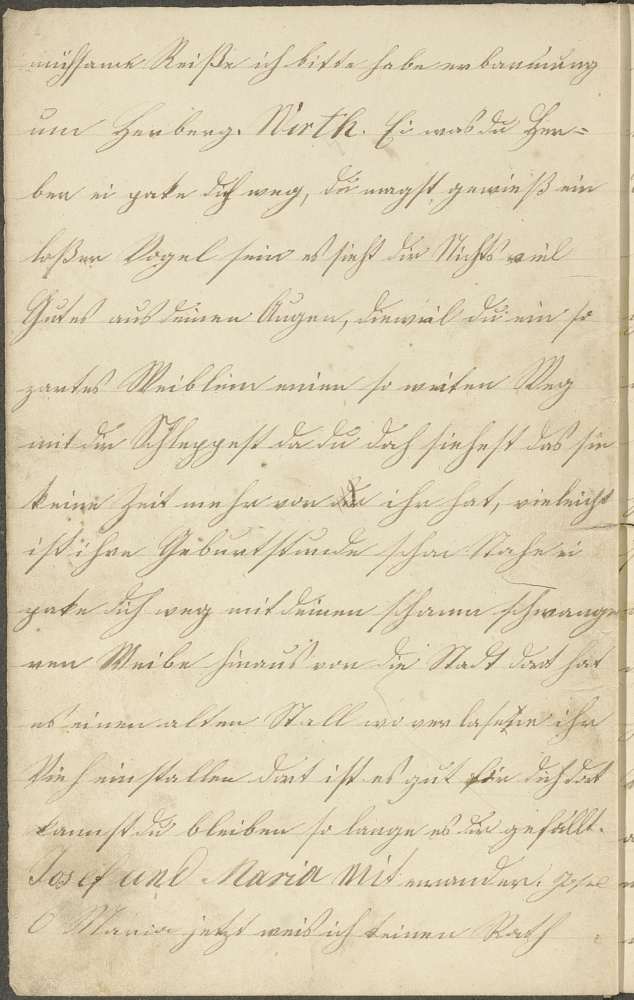 mühsame Reiße ich bitte habe erbarmung
um Herberg. Wirth. Ei was du Her=
ber ei pake dich weg, du magst gewieß ein
loßer Vogel sein es sieht dir Nichts viel
Gutes aus deinen Augen, dieweil du ein so
zartes Weiblein einen so weiten Weg
mit dir Schleppest da du doch siehest das sie
keine Zeit mehr vor ihr hat, vieleicht
ist ihre Geburtstunde schon Nahe ei
pake dich weg mit deinen schwange
ren Weibe hinaus vor die Stadt dort hat
es einen alten Stall wo ihr
Vieh einstallen dort ist es gut für dich dort
kannst du bleiben so lange es dir gefällt.
Josef und Maria Mit einander. Josef
O Maria jetzt weis ich keinen Rath